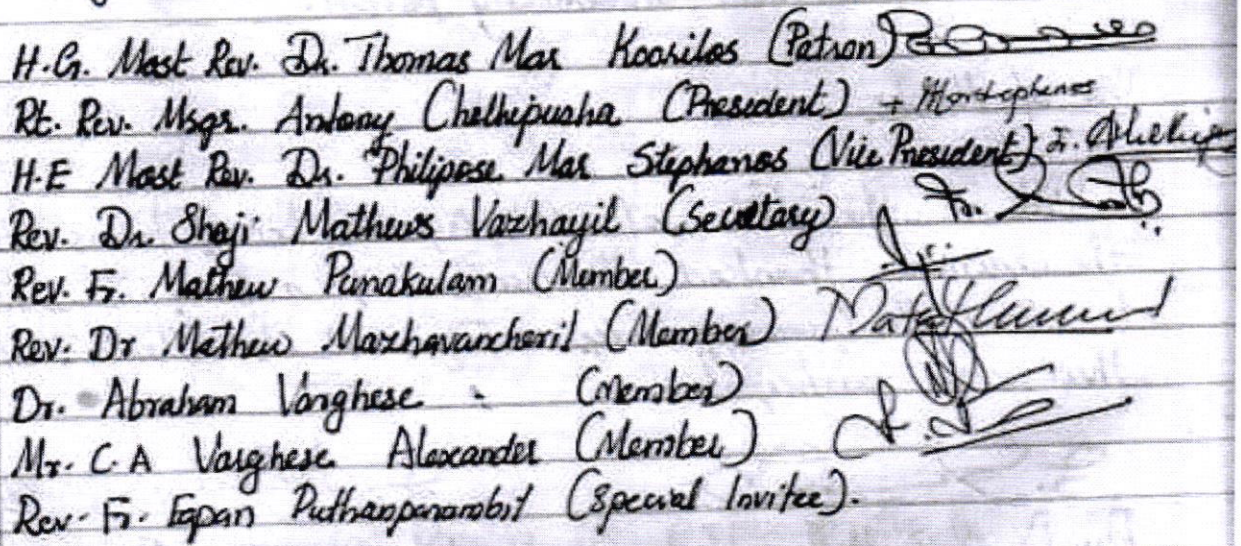 H.G. Most Rev. Dr. Thomas Mar Koorilos (Patron)
Rt. Rev. Msgr. Antony Chethipuzha (President) + Mar Stephanos
H.E Most Rev. Dr. Philipose Mar Stephanos (Vice President)
Rev. Dr. Shaji Mathews Vazhayil (Secretary) Fr.
Rev. Fr. Mathew Punakulam (Member)
Rev. Dr Mathew Mazhavancheril (Member)
Dr. Abraham Varghese (Member)
Mr. C.A Varghese Alexander (Member)
Rev. Fr. Eapan Puthanparambil (Special Invitee).